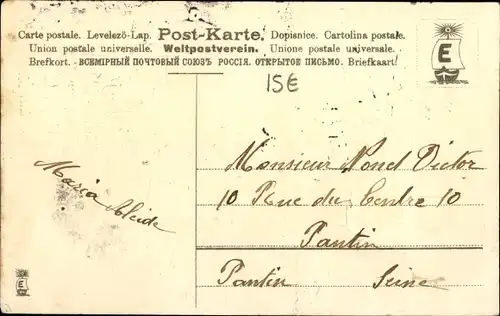 Carte postale. Levelező-Lap. Post-Karte. Dopisnice. Cartolina postale.
Union postale universelle. Weltpostverein. Unione postale universale.
Brefkort. ВСЕМІРНЫЙ ПОЧТОВЫЙ СОЮЗЪ РОССІЯ. ОТКРЫТОЕ ПИСЬМО. Briefkaart
E
15€
Monsieur Nonet Victor
10 Rue du Centre 10
Pantin
Pantin Seine
Maria
E